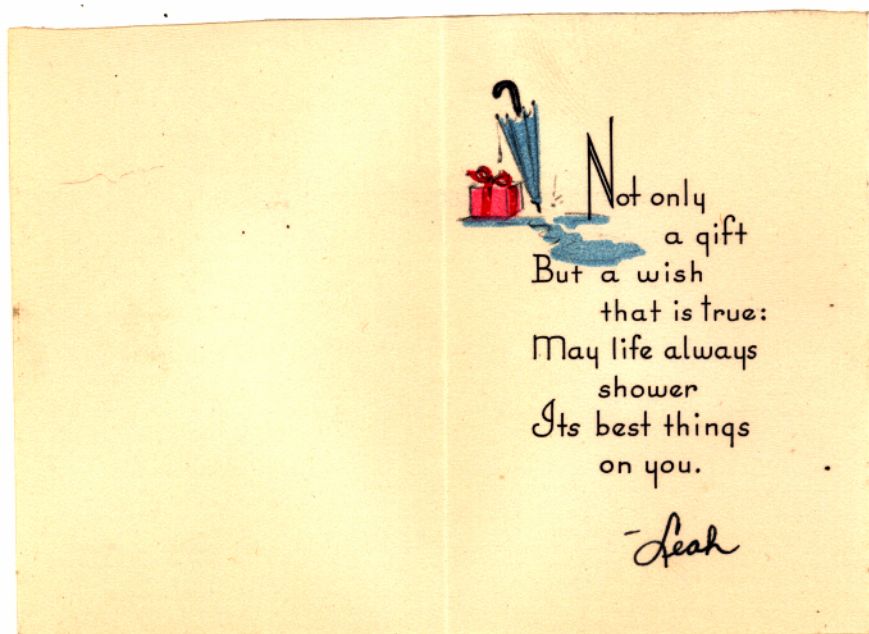 Not only
a gift
But a wish
that is true:
May life always
shower
Its best things
on you.
-Leah